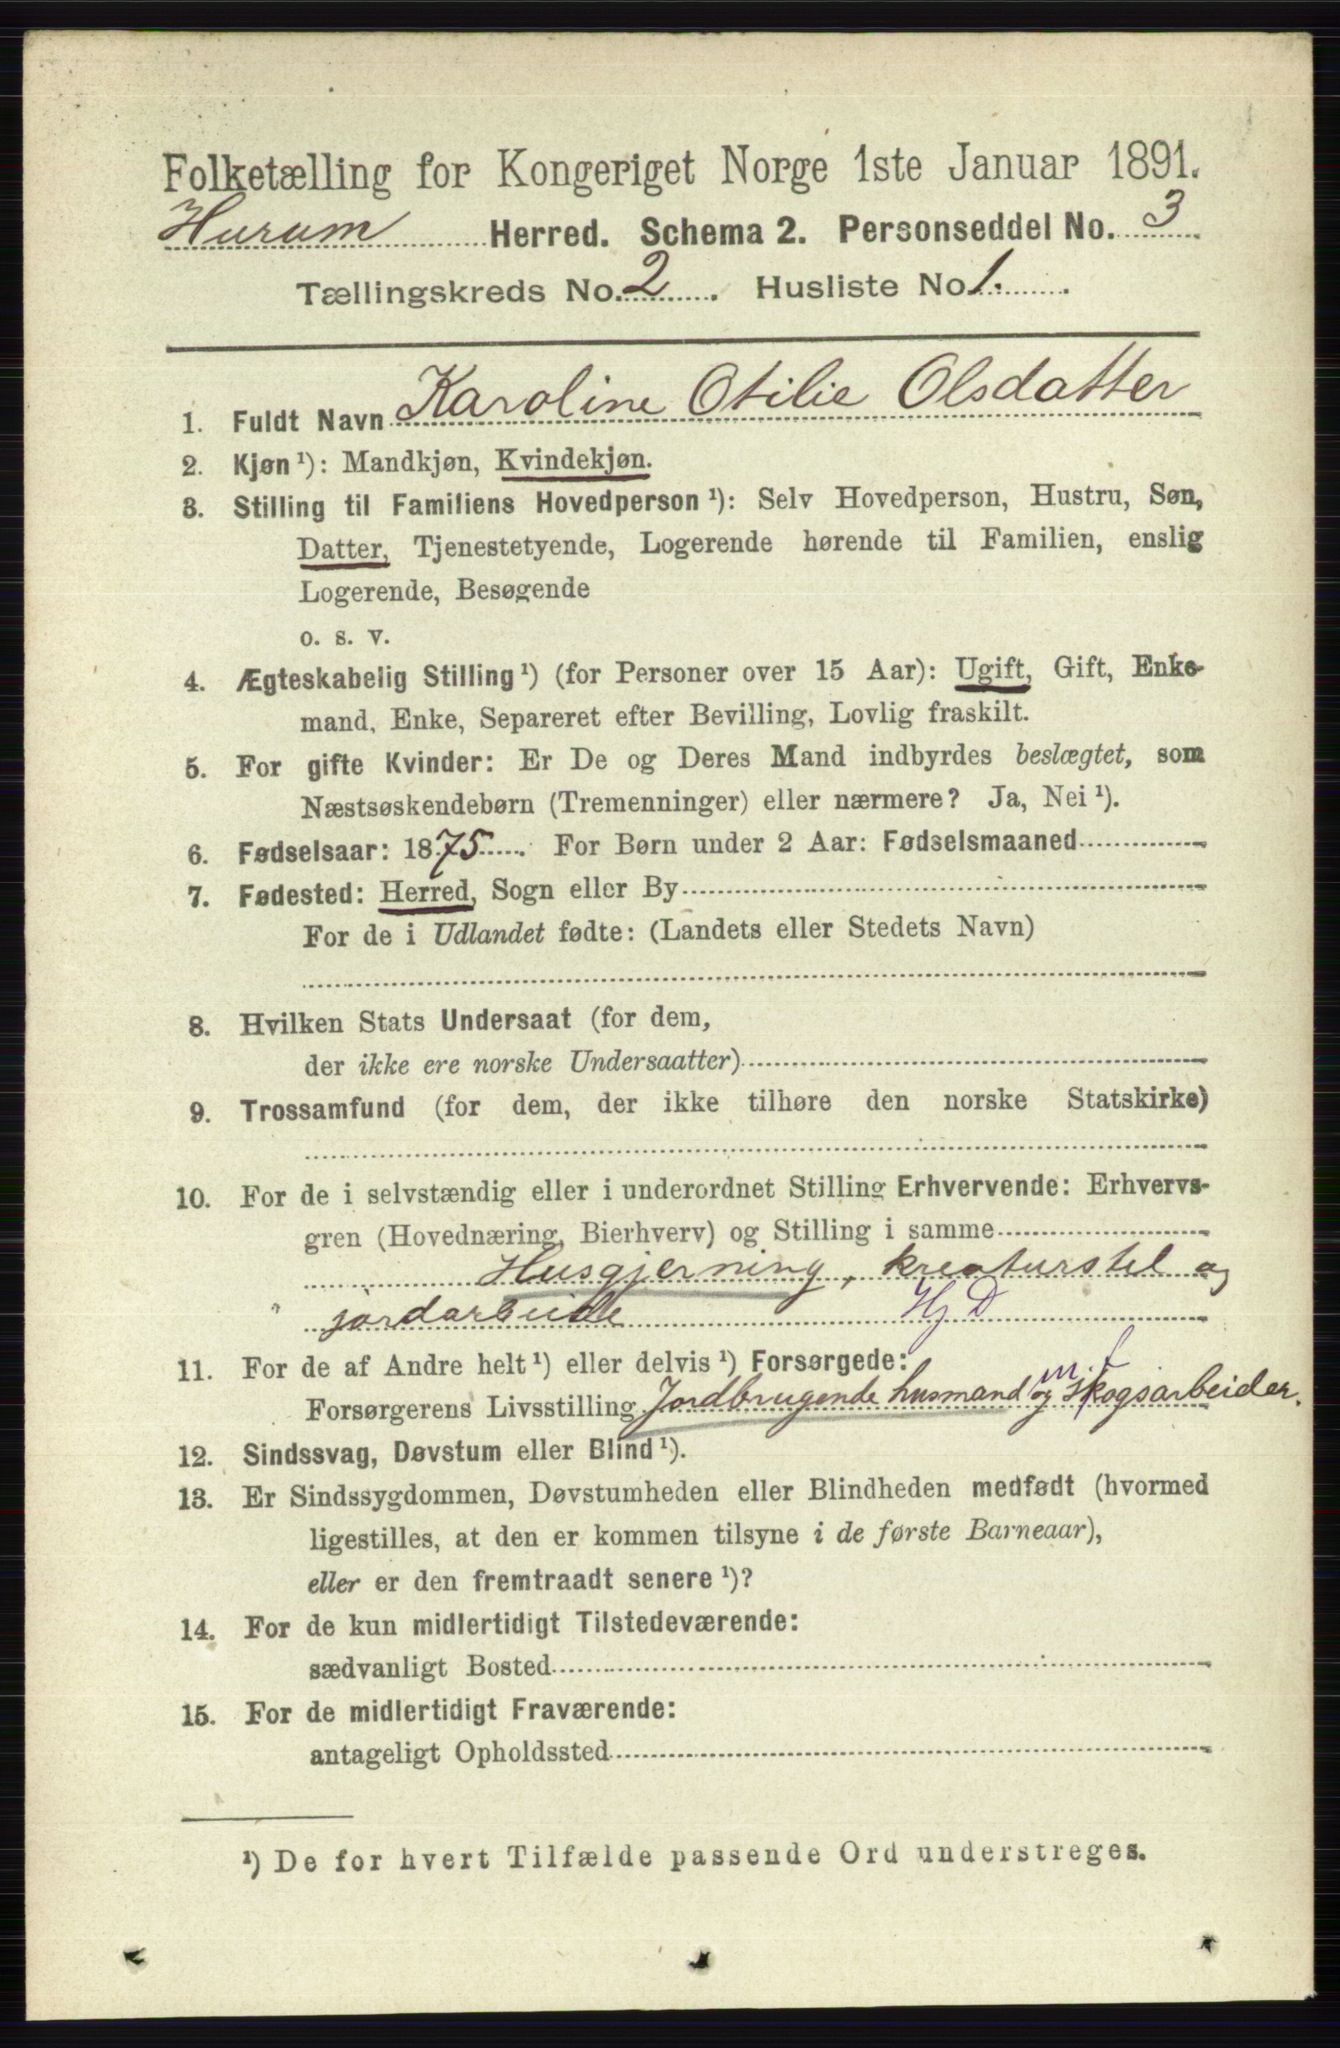 Folketælling for Kongeriget Norge 1ste Januar 1891.
Hurum Herred. Schema 2. Personseddel No. 3
Tællingskreds No. 2. Husliste No 1.
1. Fuldt Navn Karoline Otilie Olsdatter
2. Kjøn ¹): Mandkjøn, Kvindekjøn.
3. Stilling til Familiens Hovedperson ¹): Selv Hovedperson, Hustru, Søn,
Datter, Tjenestetyende, Logerende hørende til Familien, enslig
Logerende, Besøgende
o. s. v.
4. Ægteskabelig Stilling ¹) (for Personer over 15 Aar): Ugift, Gift, Enke-
mand, Enke, Separeret efter Bevilling, Lovlig fraskilt.
5. For gifte Kvinder: Er De og Deres Mand indbyrdes beslægtet, som
Næstsøskendebørn (Tremenninger) eller nærmere? Ja, Nei ¹).
6. Fødselsaar: 1875. For Børn under 2 Aar: Fødselsmaaned
7. Fødested: Herred, Sogn eller By
For de i Udlandet fødte: (Landets eller Stedets Navn)
8. Hvilken Stats Undersaat (for dem,
der ikke ere norske Undersaatter)
9. Trossamfund (for dem, der ikke tilhøre den norske Statskirke)
10. For de i selvstændig eller i underordnet Stilling Erhvervende: Erhvervs-
gren (Hovednæring, Bierhverv) og Stilling i samme
Husgjerning, kreaturstel og
jordarbeide Hj D
11. For de af Andre helt ¹) eller delvis ¹) Forsørgede:
Forsørgerens Livsstilling Jordbrugende husmand og skogsarbeider.
12. Sindssvag, Døvstum eller Blind ¹).
13. Er Sindssygdommen, Døvstumheden eller Blindheden medfødt (hvormed
ligestilles, at den er kommen tilsyne i de første Barneaar),
eller er den fremtraadt senere ¹)?
14. For de kun midlertidigt Tilstedeværende:
sædvanligt Bosted
15. For de midlertidigt Fraværende:
antageligt Opholdssted
¹) De for hvert Tilfælde passende Ord understreges.